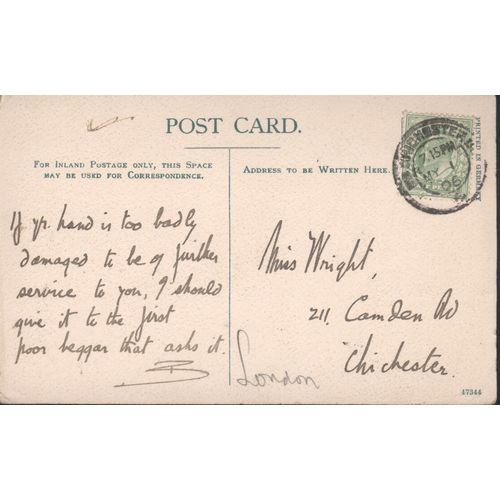 POST CARD.
FOR INLAND POSTAGE ONLY, THIS SPACE
MAY BE USED FOR CORRESPONDENCE.
ADDRESS TO BE WRITTEN HERE.
If yr hand is too badly
damaged to be of further
service to you, I should
give it to the first
poor beggar that asks it.
B
Miss Wright,
211, Camden Rd
Chichester.
London
7.15 PM
MY
06
PRINTED IN
47344